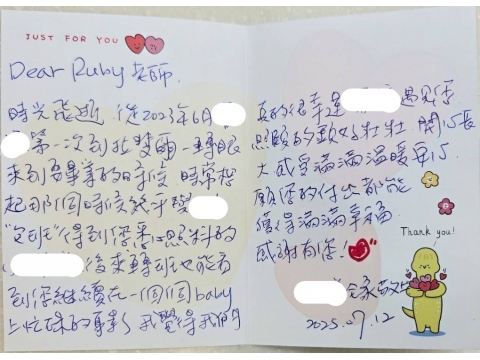 JUST FOR YOU
Dear Ruby 老師
時光飛逝 從2023年6月
第一次到 一轉眼
來到要畢業的時候 時常想
起那個時候
得到您悉心照料的
後來轉班也能看
到您繼續在一個個baby
上忙碌的身影 我覺得我們
真的很幸運 遇見您
照顧的 壯壯 開心長
大 感受滿滿溫暖
願您的付出都能
獲得滿滿幸福
感謝有您!
Thank you!
全家敬上
2025.07.12